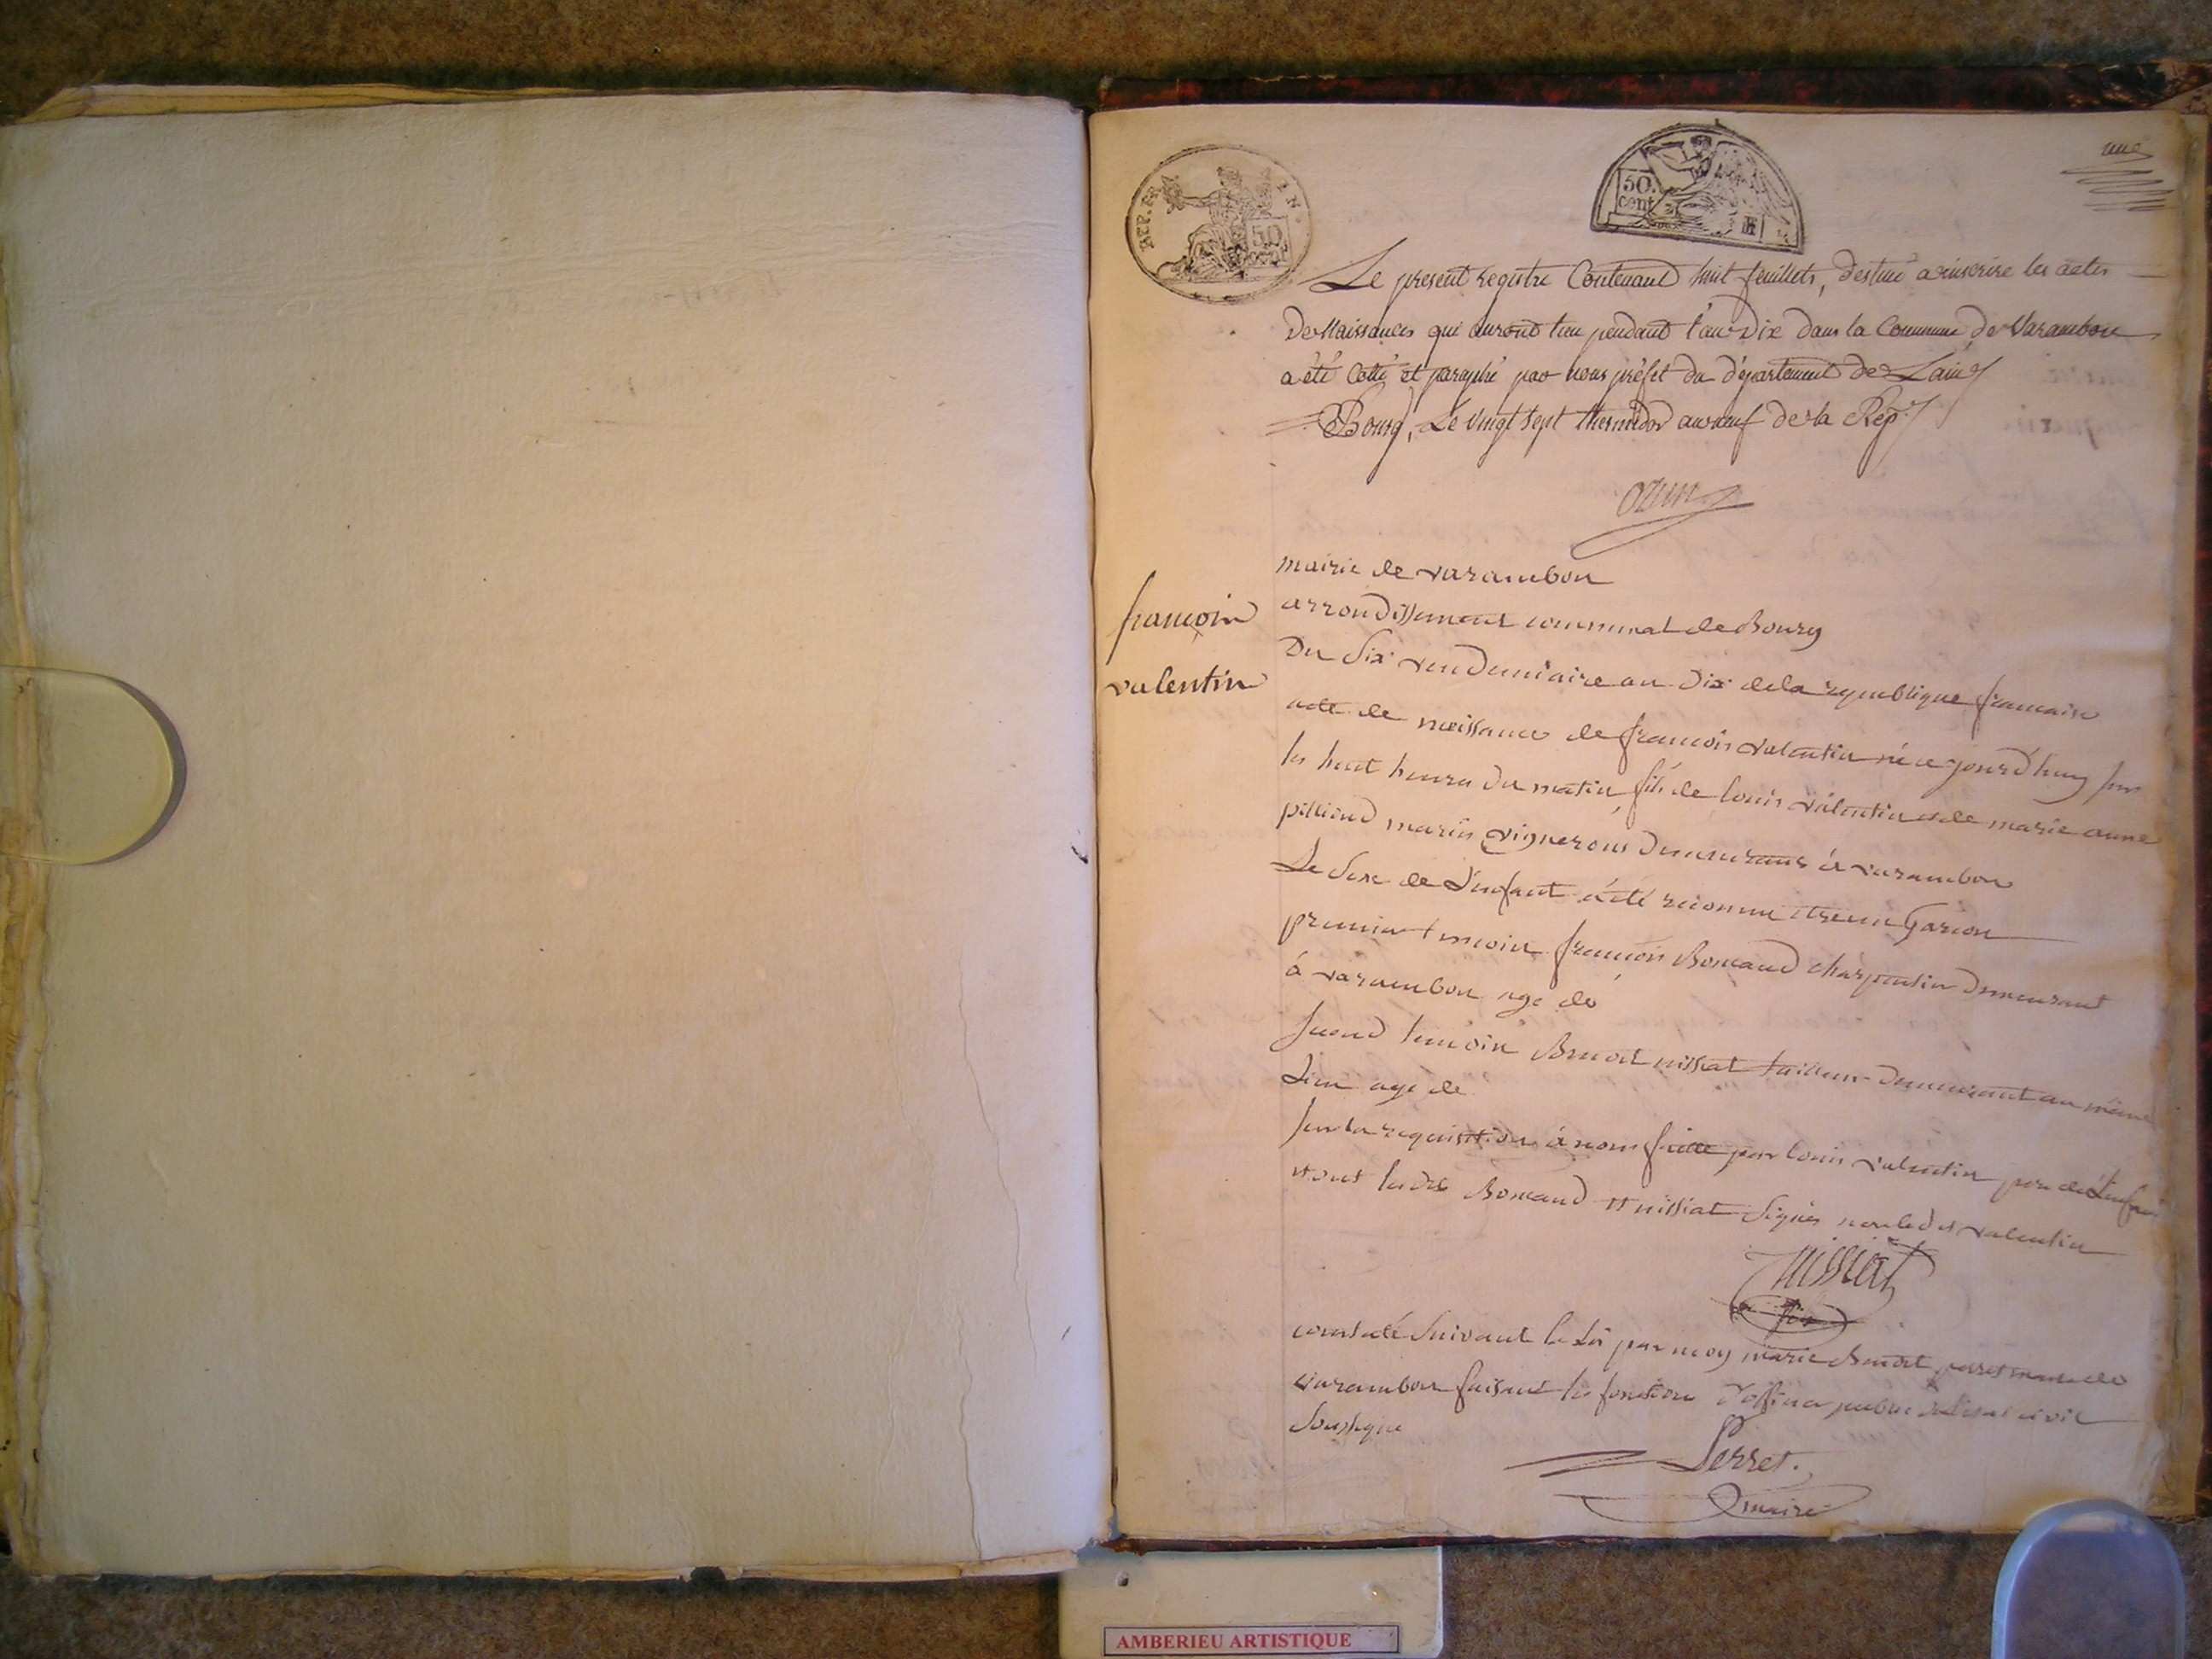 une
REP. FR.
50
cent
50.
cent
Le present registre Contenant huit feuillets, destiné a inscrire les actes
De Naissances qui auront lieu pendant l'an Dix dans la Commune de Varambon
a été Cotté et paraphé par nous préfet du département de L'ain
Bourg, Le vingt sept thermidor an neuf de la Rep.
mairie de varambon
arrondissement communal de Bourg
françois
valentin
Du Six vendemiaire an Dix de la republique francaise
acte de naissance de francois valentin né ce jourd'huy sur
les huit heures du matin fils de louis valentin et de marie anne
pilliond mariés vignerons demeurants à varambon
Le Sexe de L'enfant a été reconnu etre un Garcon
premier temoin francois Bomand charpentier demeurant
à varambon age de
second temoin Benoit nissiat tailleur demeurant au même
Lieu age de
sur la requisition à nous faitte par louis valentin pere de L'enfant
et ont lesdts Bomand et nissiat Signés non led valentin
nissiat
constaté Suivant la Loi par moy marie Benoit perret maire de
varambon faisant les fonctions d'officier public de l'etat civil
Soussigné
Perret.
maire
AMBERIEU ARTISTIQUE